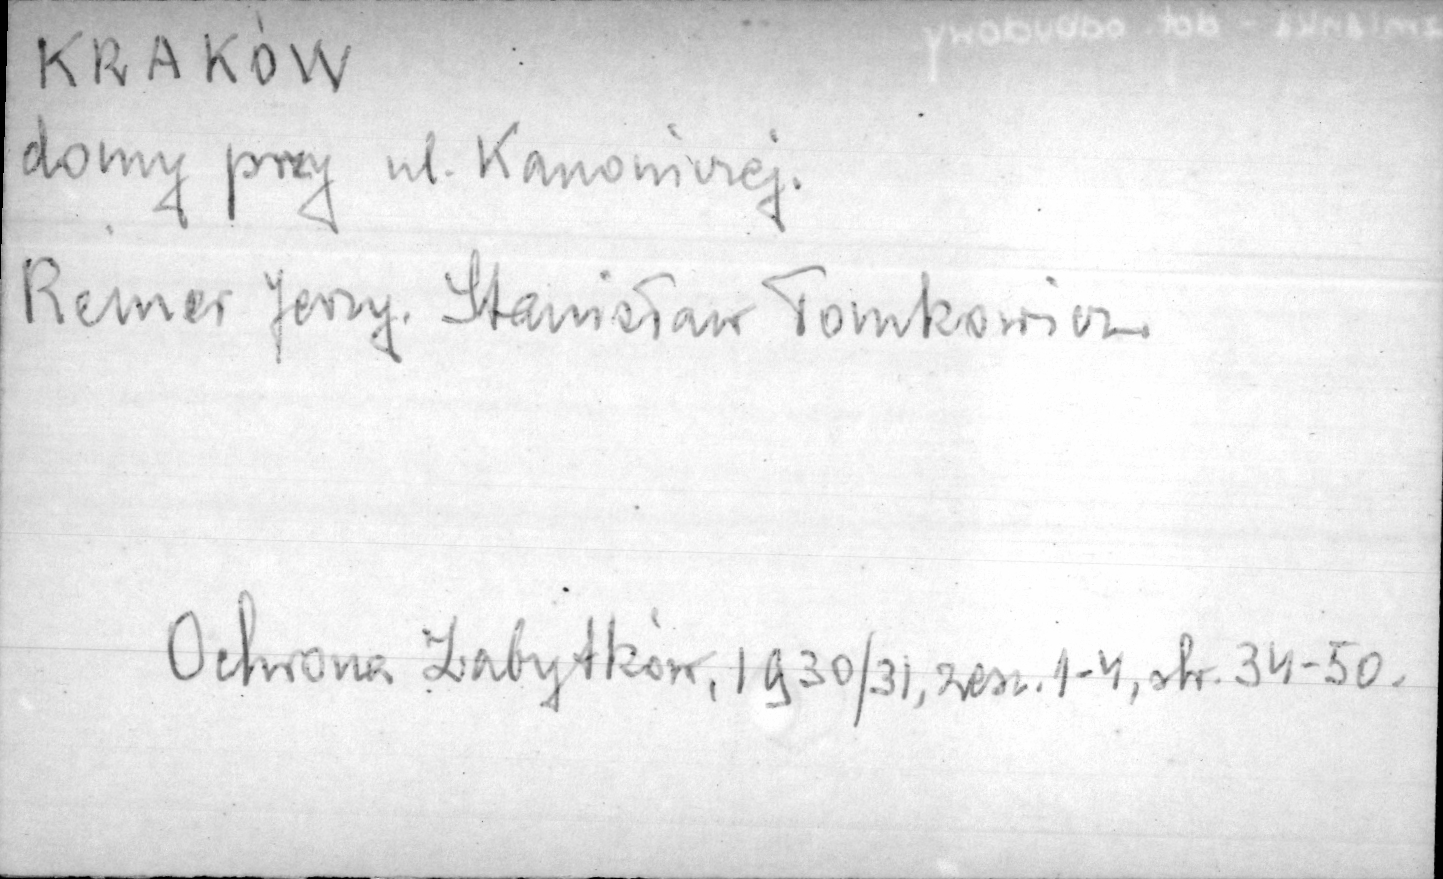 KRAKÓW
domy przy ul. Kanoniczej.
Remer Jerzy. Stanisław Tomkowicz.
Ochrona Zabytków, 1930/31, zesz. 1-4, str. 34-50.